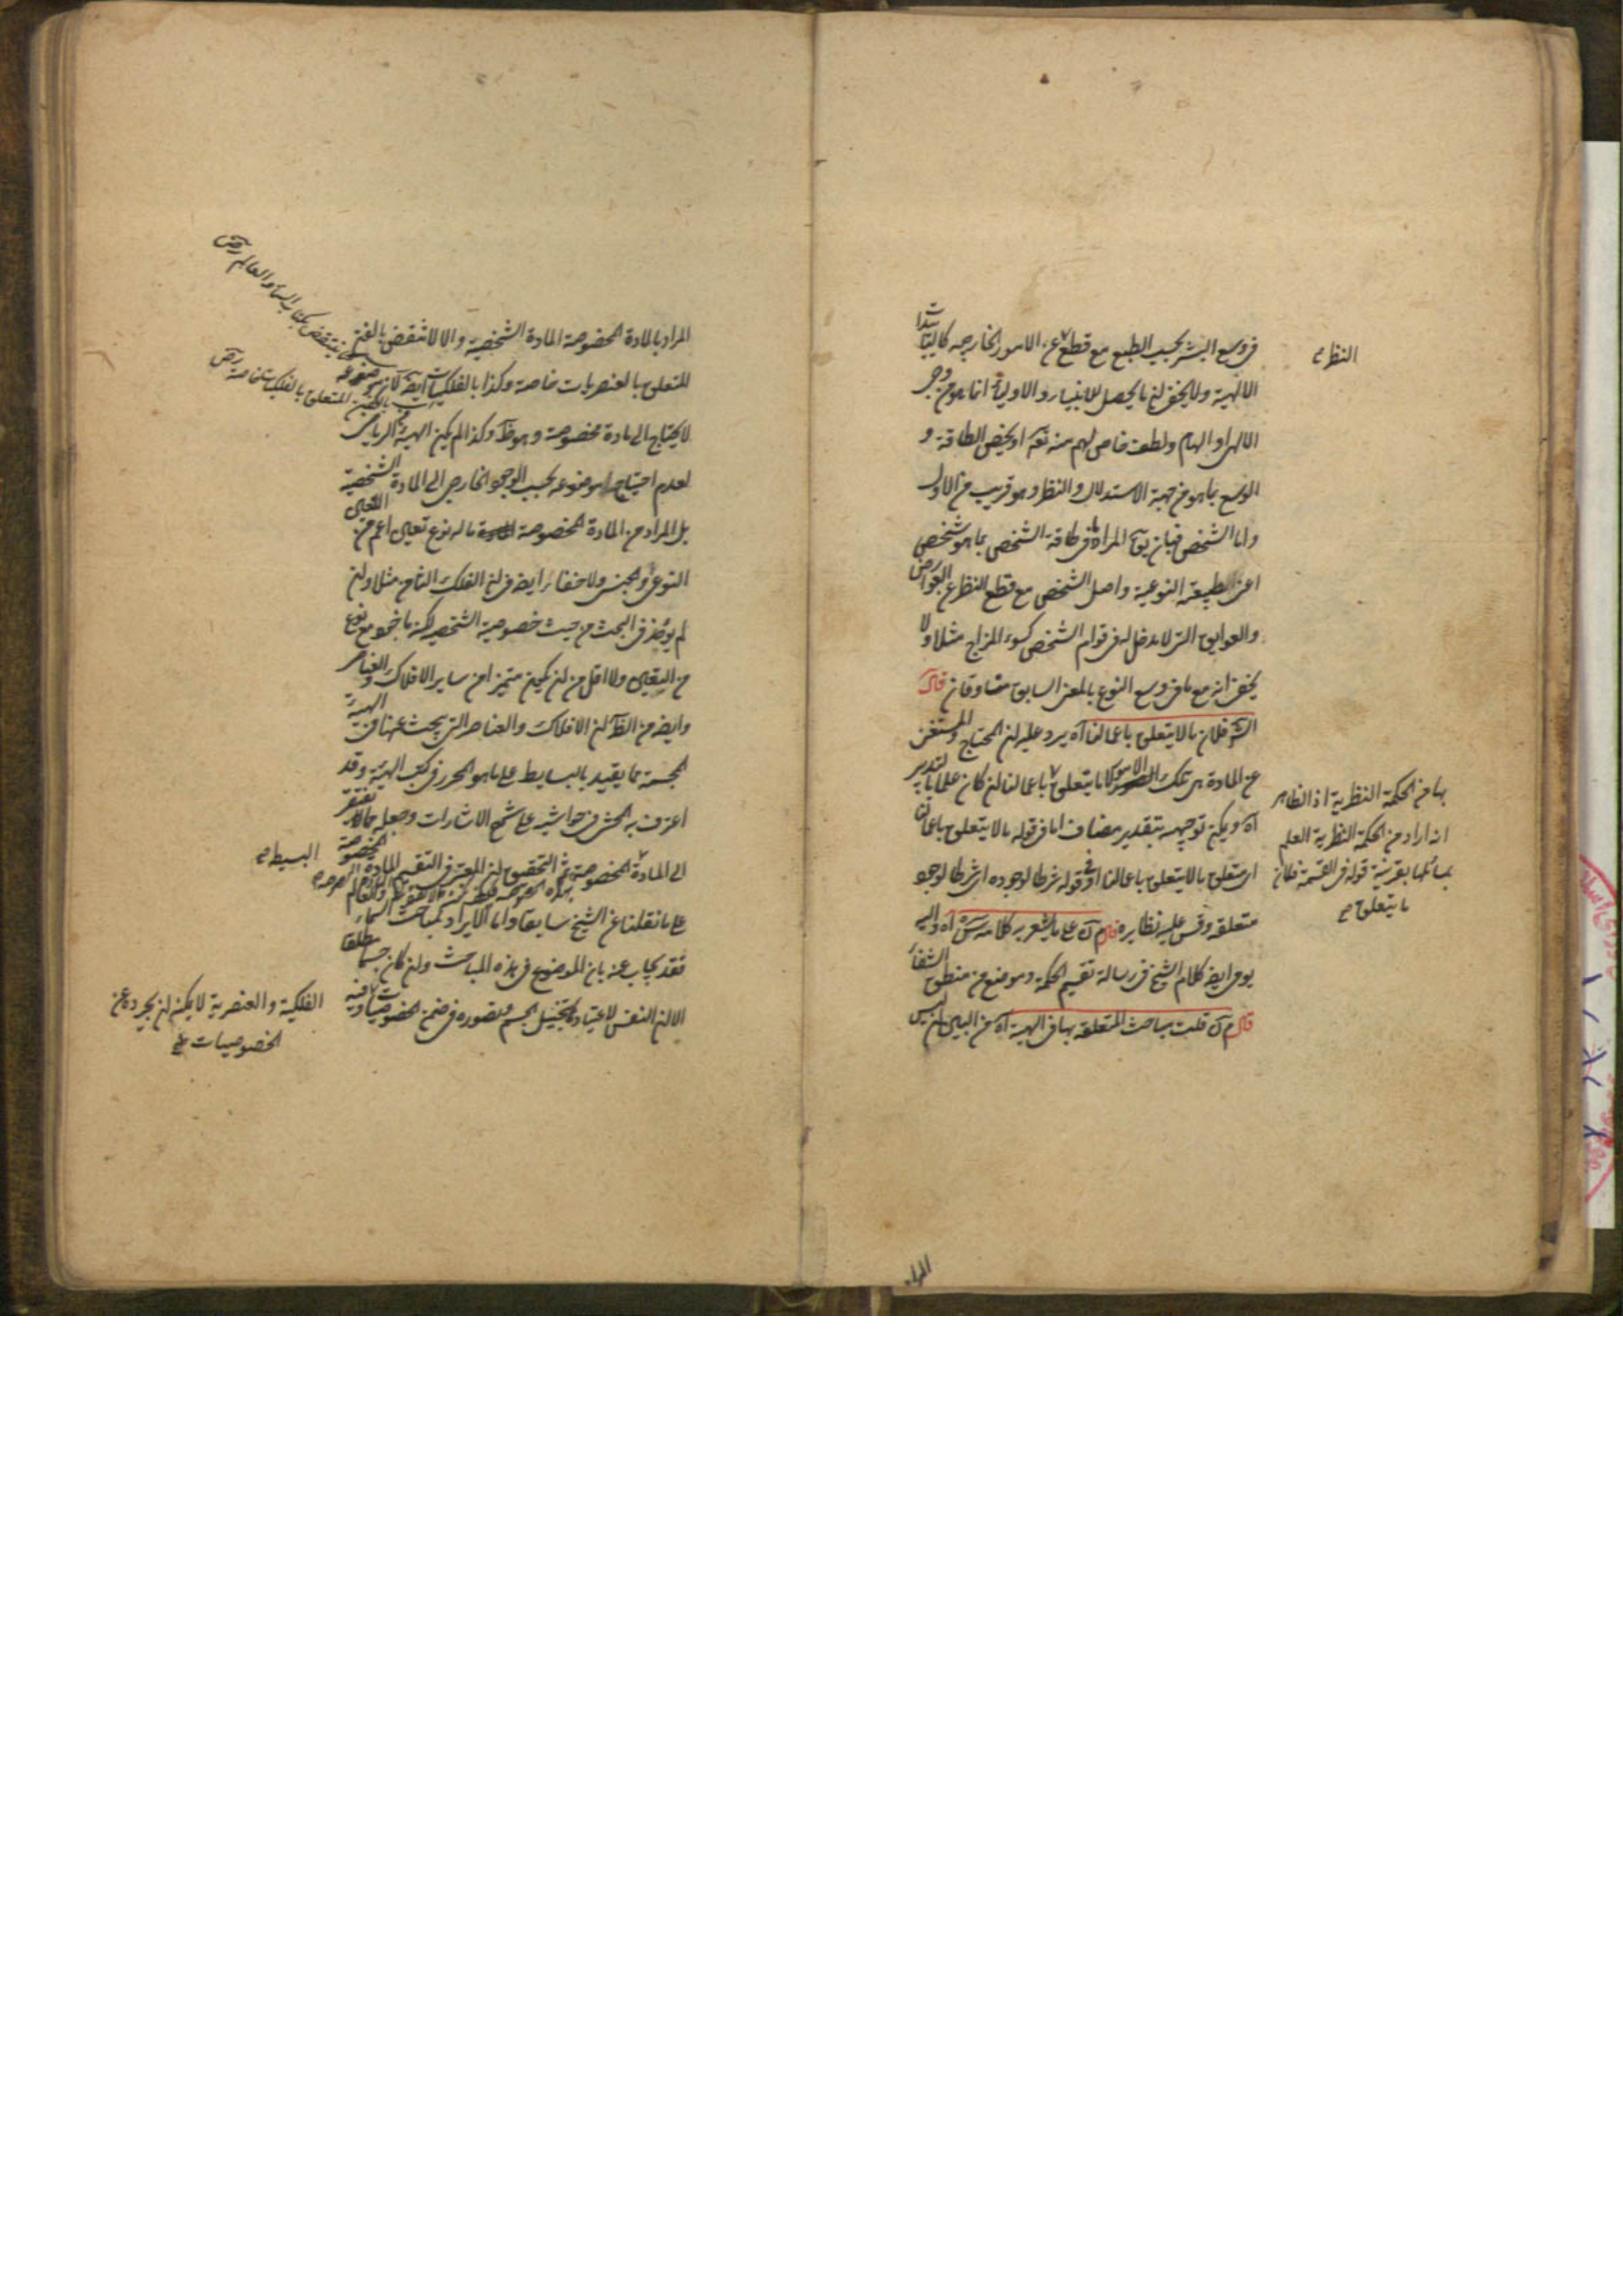 فى وسع البشر بحسب الطبع مع قطع عن الامور الخارجيه كالتأييدات
النظر
الالهية ولا يخفى ان ما يحصل للانبياء والاولياء انما هو من وحى
الالهى او الهام ولطف خاص لهم منه تع او يخص الطاقة و
الوسع بما هو من جهة الاستدلال والنظر وهو قريب من الاول
واما الشخص فبان يق المراد ما فى طاقة الشخص بما هو شخص
اعنى الطبيعة النوعية واصل الشخص مع قطع النظر عن العوارض
والعوايق التى لا مدخل لها فى قوام الشخص كسوء المزاج مثلا ولا
يخفى انه مع ما فى وسع النوع بالمعنى السابق متساوقان قال
الش فلان ما لا يتعلق باعمالنا اه يرد عليه ان المحتاج والمستغنى
عن المادة هى تلك الامور لا ما يتعلق باعمالنا ان كان علما بالتدبير
اه ويمكن توجيهه بتقدير مضاف اما فى قوله ما لا يتعلق باعمالنا
اى متعلق ما لا يتعلق باعمالنا او فى قوله شرطا لوجوده اى شرطا لوجود
متعلقه وقس عليه نظايره قال م ق على ما يشعر به كلامه اه واليه
يومى ايضا كلام الشيخ فى رسالة تقسيم الحكمة وموضع من منطق الشفاء
قال م ق قلت مباحث المتعلقه بها فى الهيية اه من البين ان ليس
بها من الحكمة النظرية اذ الظاهر
انه اراد من الحكمة النظرية العلم
بمسائلها بقرينة قوله فى القسمة فلان
ما يتعلق
المراد
المراد بالمادة المخصوصة المادة الشخصية والا لانتقض بالفن
المتعلق بالعنصريات خاصة وكذا بالفلكيات ايضا لان موضوعه
لا يحتاج الى مادة مخصوصة وهو ظ وكذا لم يكن الهيية من الرياضى
لعدم احتياج موضوعه بحسب الوجود الخارجى الى المادة الشخصية
بل المراد من المادة المخصوصة ما له نوع تعين اعم من التعين
النوعى والجنسى ولا خفاء ايضا فى ان الفلك الثامن مثلا وان
لم يؤخذ فى البحث من حيث خصوصية الشخصية لكنه ماخوذ مع نوع
من التعين ولا اقل من ان يكون متميزا من ساير الافلاك والعناصر
وايضا من الظ ان الافلاك والعناصر التى يبحث عنها فى الهيية
المجسمة مما يقيد بالبسايط على ما هو المحرر فى كتب الهيية وقد
اعترف به المحشى فى حواشيه على شرح الاشارات وجعله مما لا يفتقر
الى المادة المخصوصة ثم التحقيق ان المعتبر فى التقسيم المادة المخصوصة
البسيط
على ما نقلنا عن الشيخ سابقا واما الايراد بمباحث السماء والعالم
فقد يجاب عنه بان الموضوع فى هذه المباحث وان كان جسما مطلقا
الا ان النفس لاعتيادها بتخيل الجسم وتصوره فى ضمن الخصوصيات
الفلكية والعنصرية لا يمكنه ان يجرده عن
الخصوصيات
ينتقض بكتاب السماء والعالم
المتعلق بالفلكيات خاصة